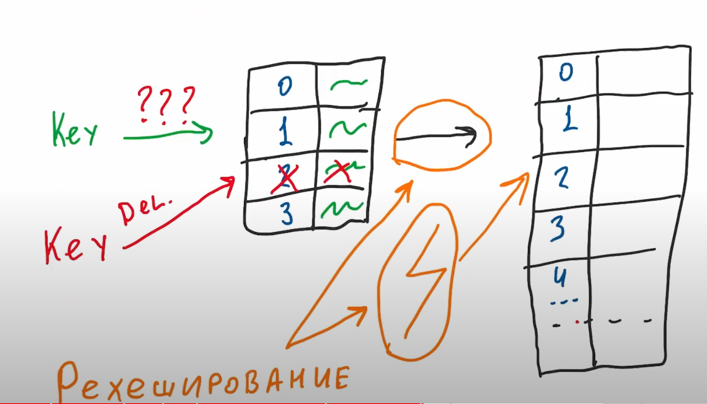 ???
Key
Del.
Key
0
1
2
3
0
1
2
3
4
...
Рехеширование